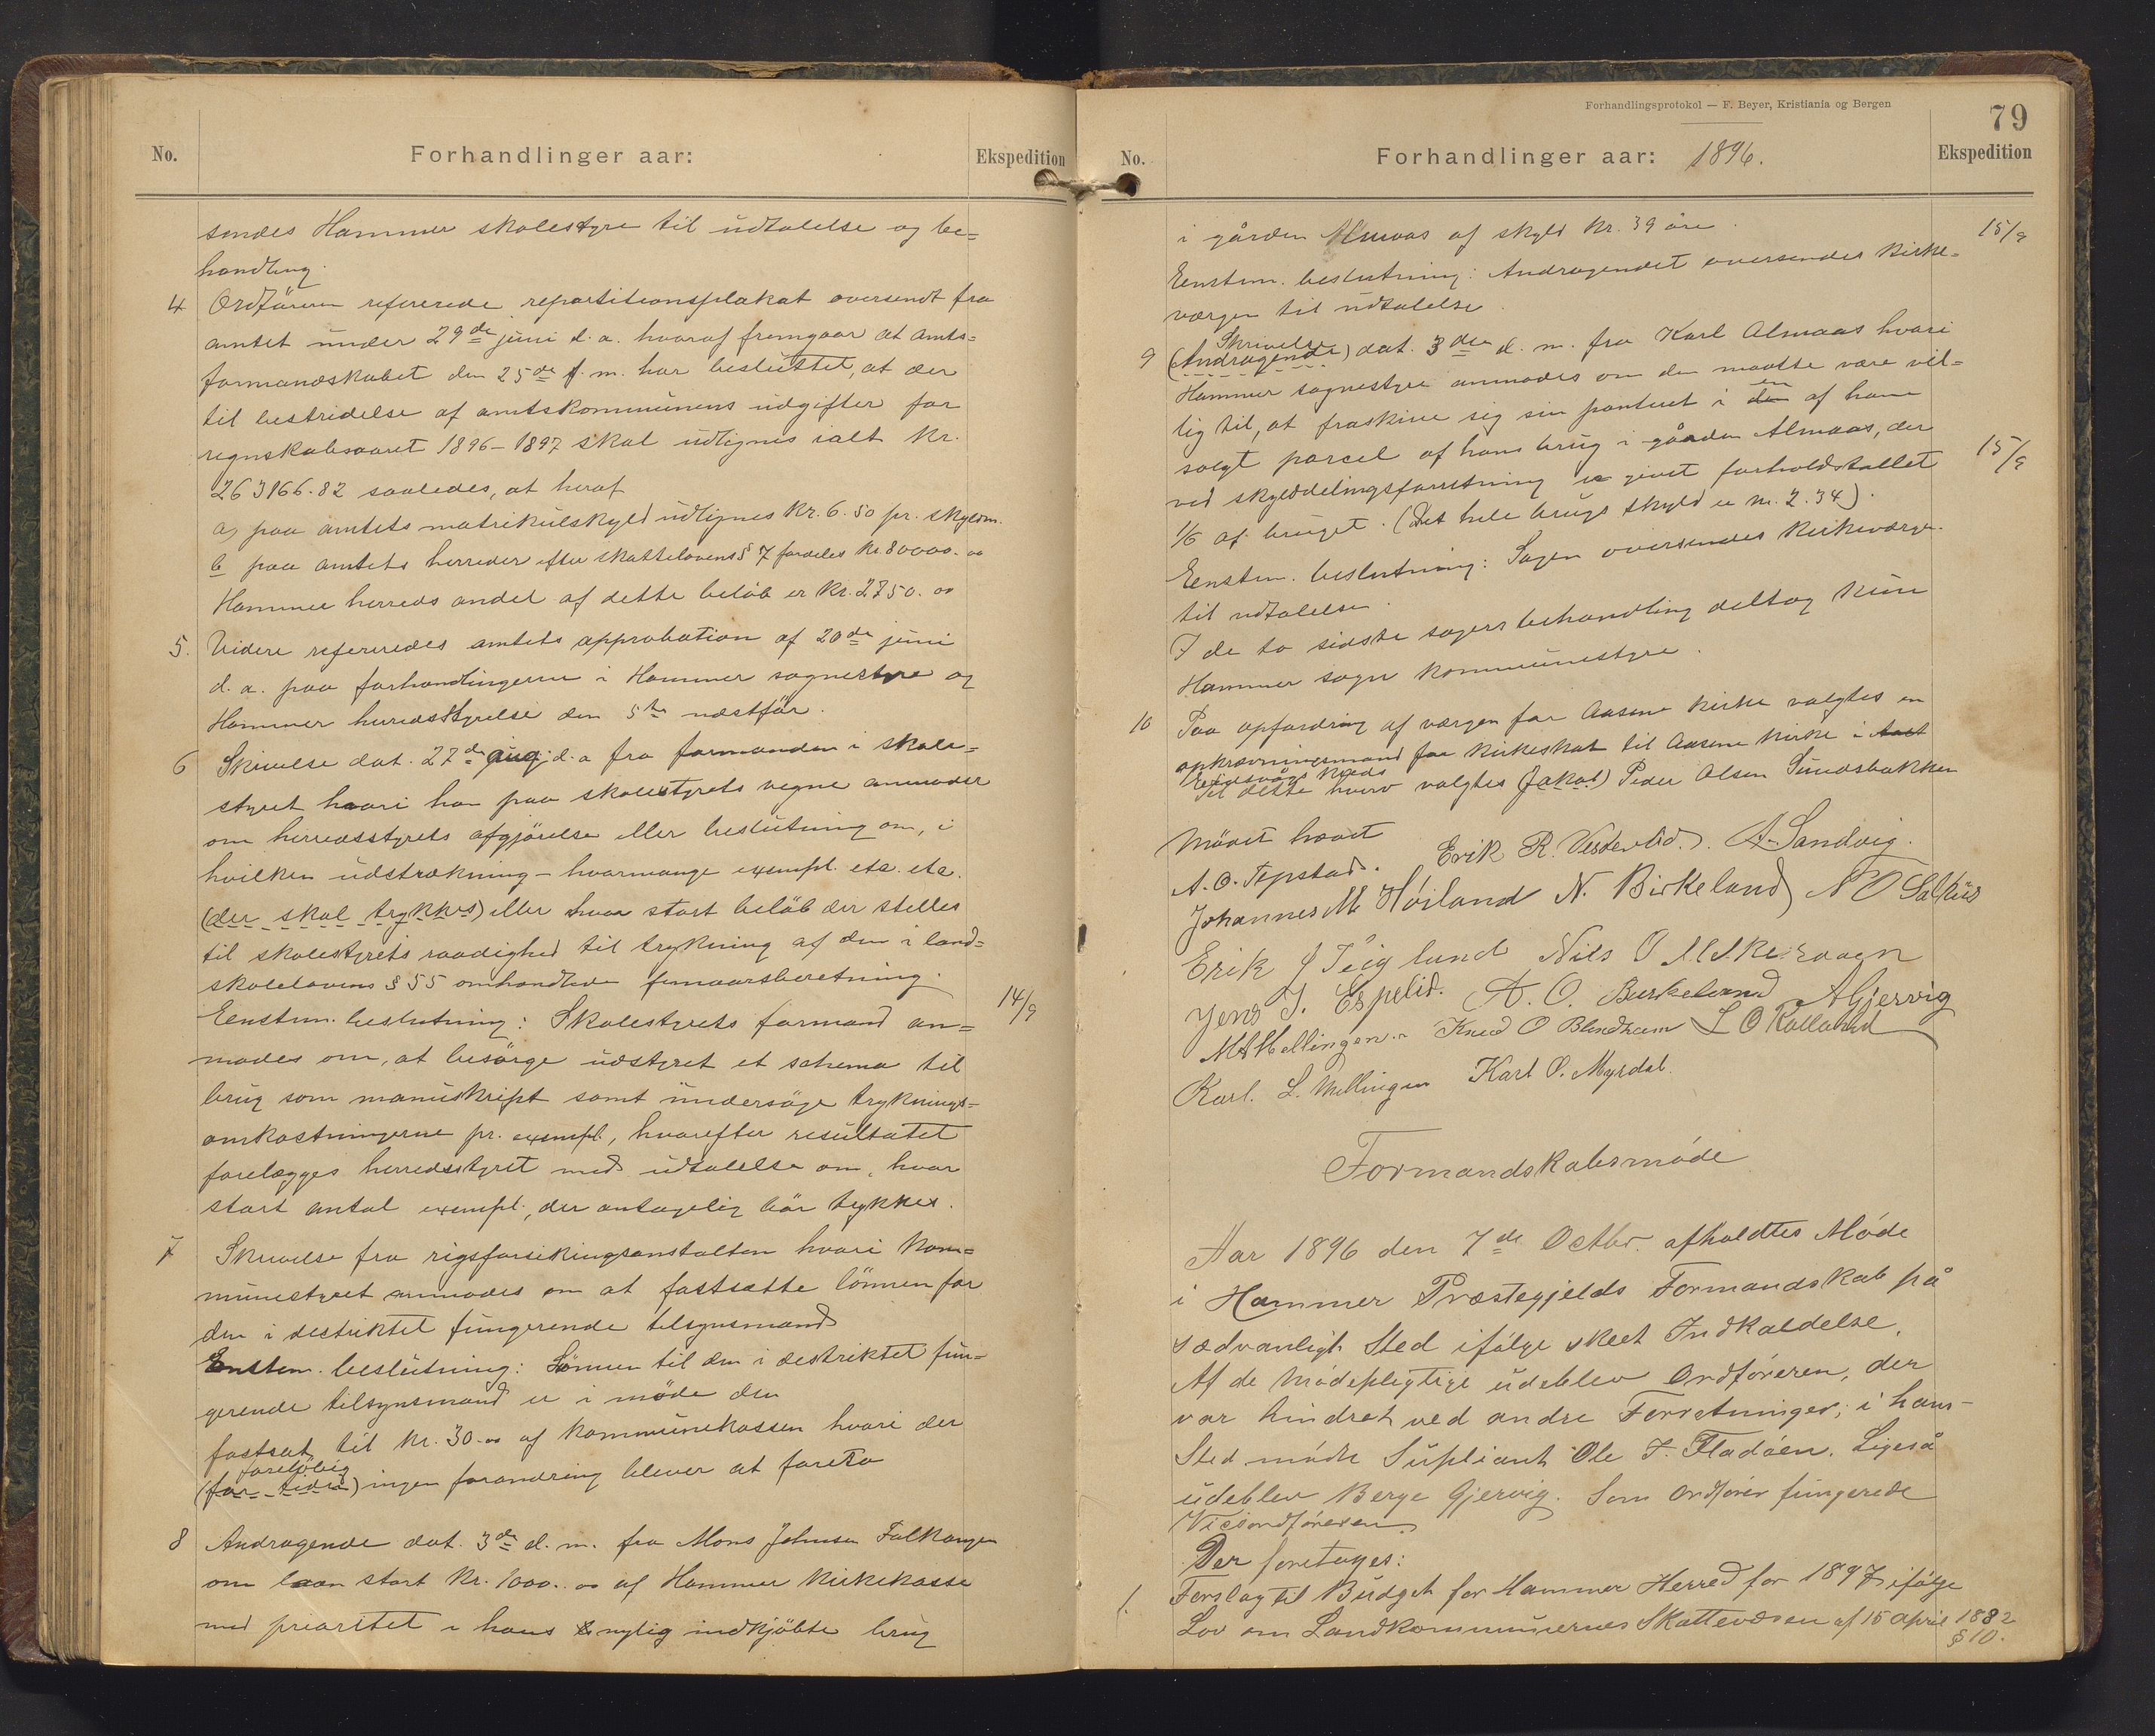 No.
Forhandlinger aar:
Ekspedition
sendes Hammer skolestyre til udtalelse og be=
handling.
4 Ordføreren refererede repartitionsplakat oversendt fra
amtet under 29de juni d. a. hvoraf fremgaar at amts-
formandskabet den 25de f. m. har besluttet, at der
til bestridelse af amtskommunens udgifter for
regnskabsaaret 1896-1897 skal udlignes ialt kr.
263166.82 saaledes, at heraf
a, paa amtets matrikulskyld udlignes kr. 6.50 pr. skyldm.
b paa amtets herreder efter skattelovens § 7 fordeles kr 80000.00
Hammer herreds andel af dette beløb er kr. 2750.00
5. Videre refereredes amtets approbation af 20de juni
d. a. paa forhandlingerne i Hammer sognestyre og
Hammer herredsstyrelse den 5te næstfør.
6 Skrivelse dat. 27de aug. d. a fra formanden i skole=
styret hvori han paa skolestyrets vegne anmoder
om herredsstyrets afgjørelse eller beslutning om, i
hvilken udstrækning - hvormange exempl. etc. etc.
(der skal trykkes) eller hvor stort beløb der stilles
til skolestyrets raadighed til trykning af den i land=
skolelovens § 55 omhandlede femaarsberetning.
Eenstem. beslutning: Skolestyrets formand an= 14/9
modes om, at besørge udstyret et schema til
brug som manuskript samt undersøge tryknings=
omkostningerne pr. exempl., hvorefter resultatet
forelægges herredsstyret med udtalelse om, hvor
stort antal exempl., der antagelig bør trykkes.
7 Skrivelse fra rigsforsikringsanstalten hvori kom=
munestyret anmodes om at fastsætte lønnen for
den i destriktet fungerende tilsynsmand
Enstem. beslutning: Lønnen til den i destriktet fun=
gerende tilsynsmand er i møde den
fastsat til kr. 30.00 af kommunekassen hvori der
foreløbig
(for tiden) ingen forandring blever at foreta
8 Andragende dat. 3de d. m. fra Mons Johnsen Falkangen
om laan stort kr. 1000.00 af Hammer kirkekasse
med prioritet i hans nylig indkjøbte brug
Forhandlingsprotokol — F. Beyer, Kristiania og Bergen
79
No.
Forhandlinger aar: 1896.
Ekspedition
i gården Almaas af skyld kr. 39 øre. 15/9
Eenstem. beslutning: Andragendet oversendes kirke-
værgen til udtalelse.
Skrivelse
9 (Andragende) dat. 3die d. m. fra Karl Almaas hvori
Hammer sognestyre anmodes om den maatte være vil=
en
lig til, at fraskrive sig sin panteret i den af ham
solgt parcel af hans brug i gården Almaas, der
ved skylddelingsforretning er givet forholdstallet 15/9
1/6 af bruget. (Det hele brugs skyld er m. 2.34).
Eenstem. beslutning: Sagen oversendes kirkeværge
til udtalelse.
I de to sidste sagers behandling deltog kun
Hammer sogns kommunestyre.
10 Paa opfordring af værgen for Aasene kirke valgtes en
opkrævningsmand for kirkeskat til Aasene kirke i
Eidsvågs kreds
Til dette hverv valgtes (Jakob) Peder Olsen Sundsbakken
Mødet hævet
A. O. Tepstad. Erik R. Vestervlid. A. Sandvig.
Johannes M Høiland N. Birkeland N O Salhus
Erik J Teigland Nils O
Jens J. Espelid. A. O. Birkeland A Gjervig
M A Mellingen. Knud O Blindheim L O Kalland
Karl. L. Mellingen Karl O. Myrdal.
Formandskabsmøde
Aar 1896 den 7de Octbr. afholdtes Møde
i Hammer Præstegjelds Formandskab på
sædvanligt Sted ifølge skeet Indkaldelse.
Af de Mødepligtige udeblev Ordføreren, der
var hindret ved andre Forretninger; i hans
Sted mødte Supliant Ole J. Fladøen. Ligeså
udeblev Berge Gjervig. Som Ordfører fungerede
Viceordføreren.
Der foretages:
1. Forslag til Budget for Hammer Herred for 1897 ifølge
Lov om Landkommunernes Skattevæsen af 15 april 1882
§ 10.